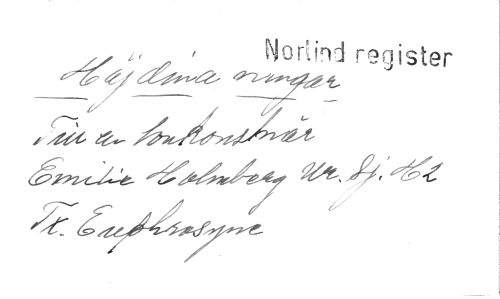 Norlind register
Höj dina vingar
Till en tonkonstnär
Emilie Holmberg Ur. Sj. H2
Tx. Euphrosyne